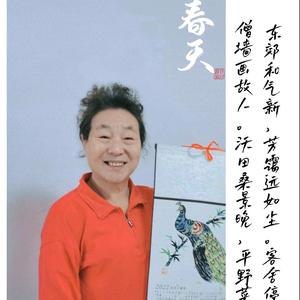 春天
东郊和气新，芳霭远如尘。客舍停
僧墙画故人。沃田桑景晚，平野菜
2022